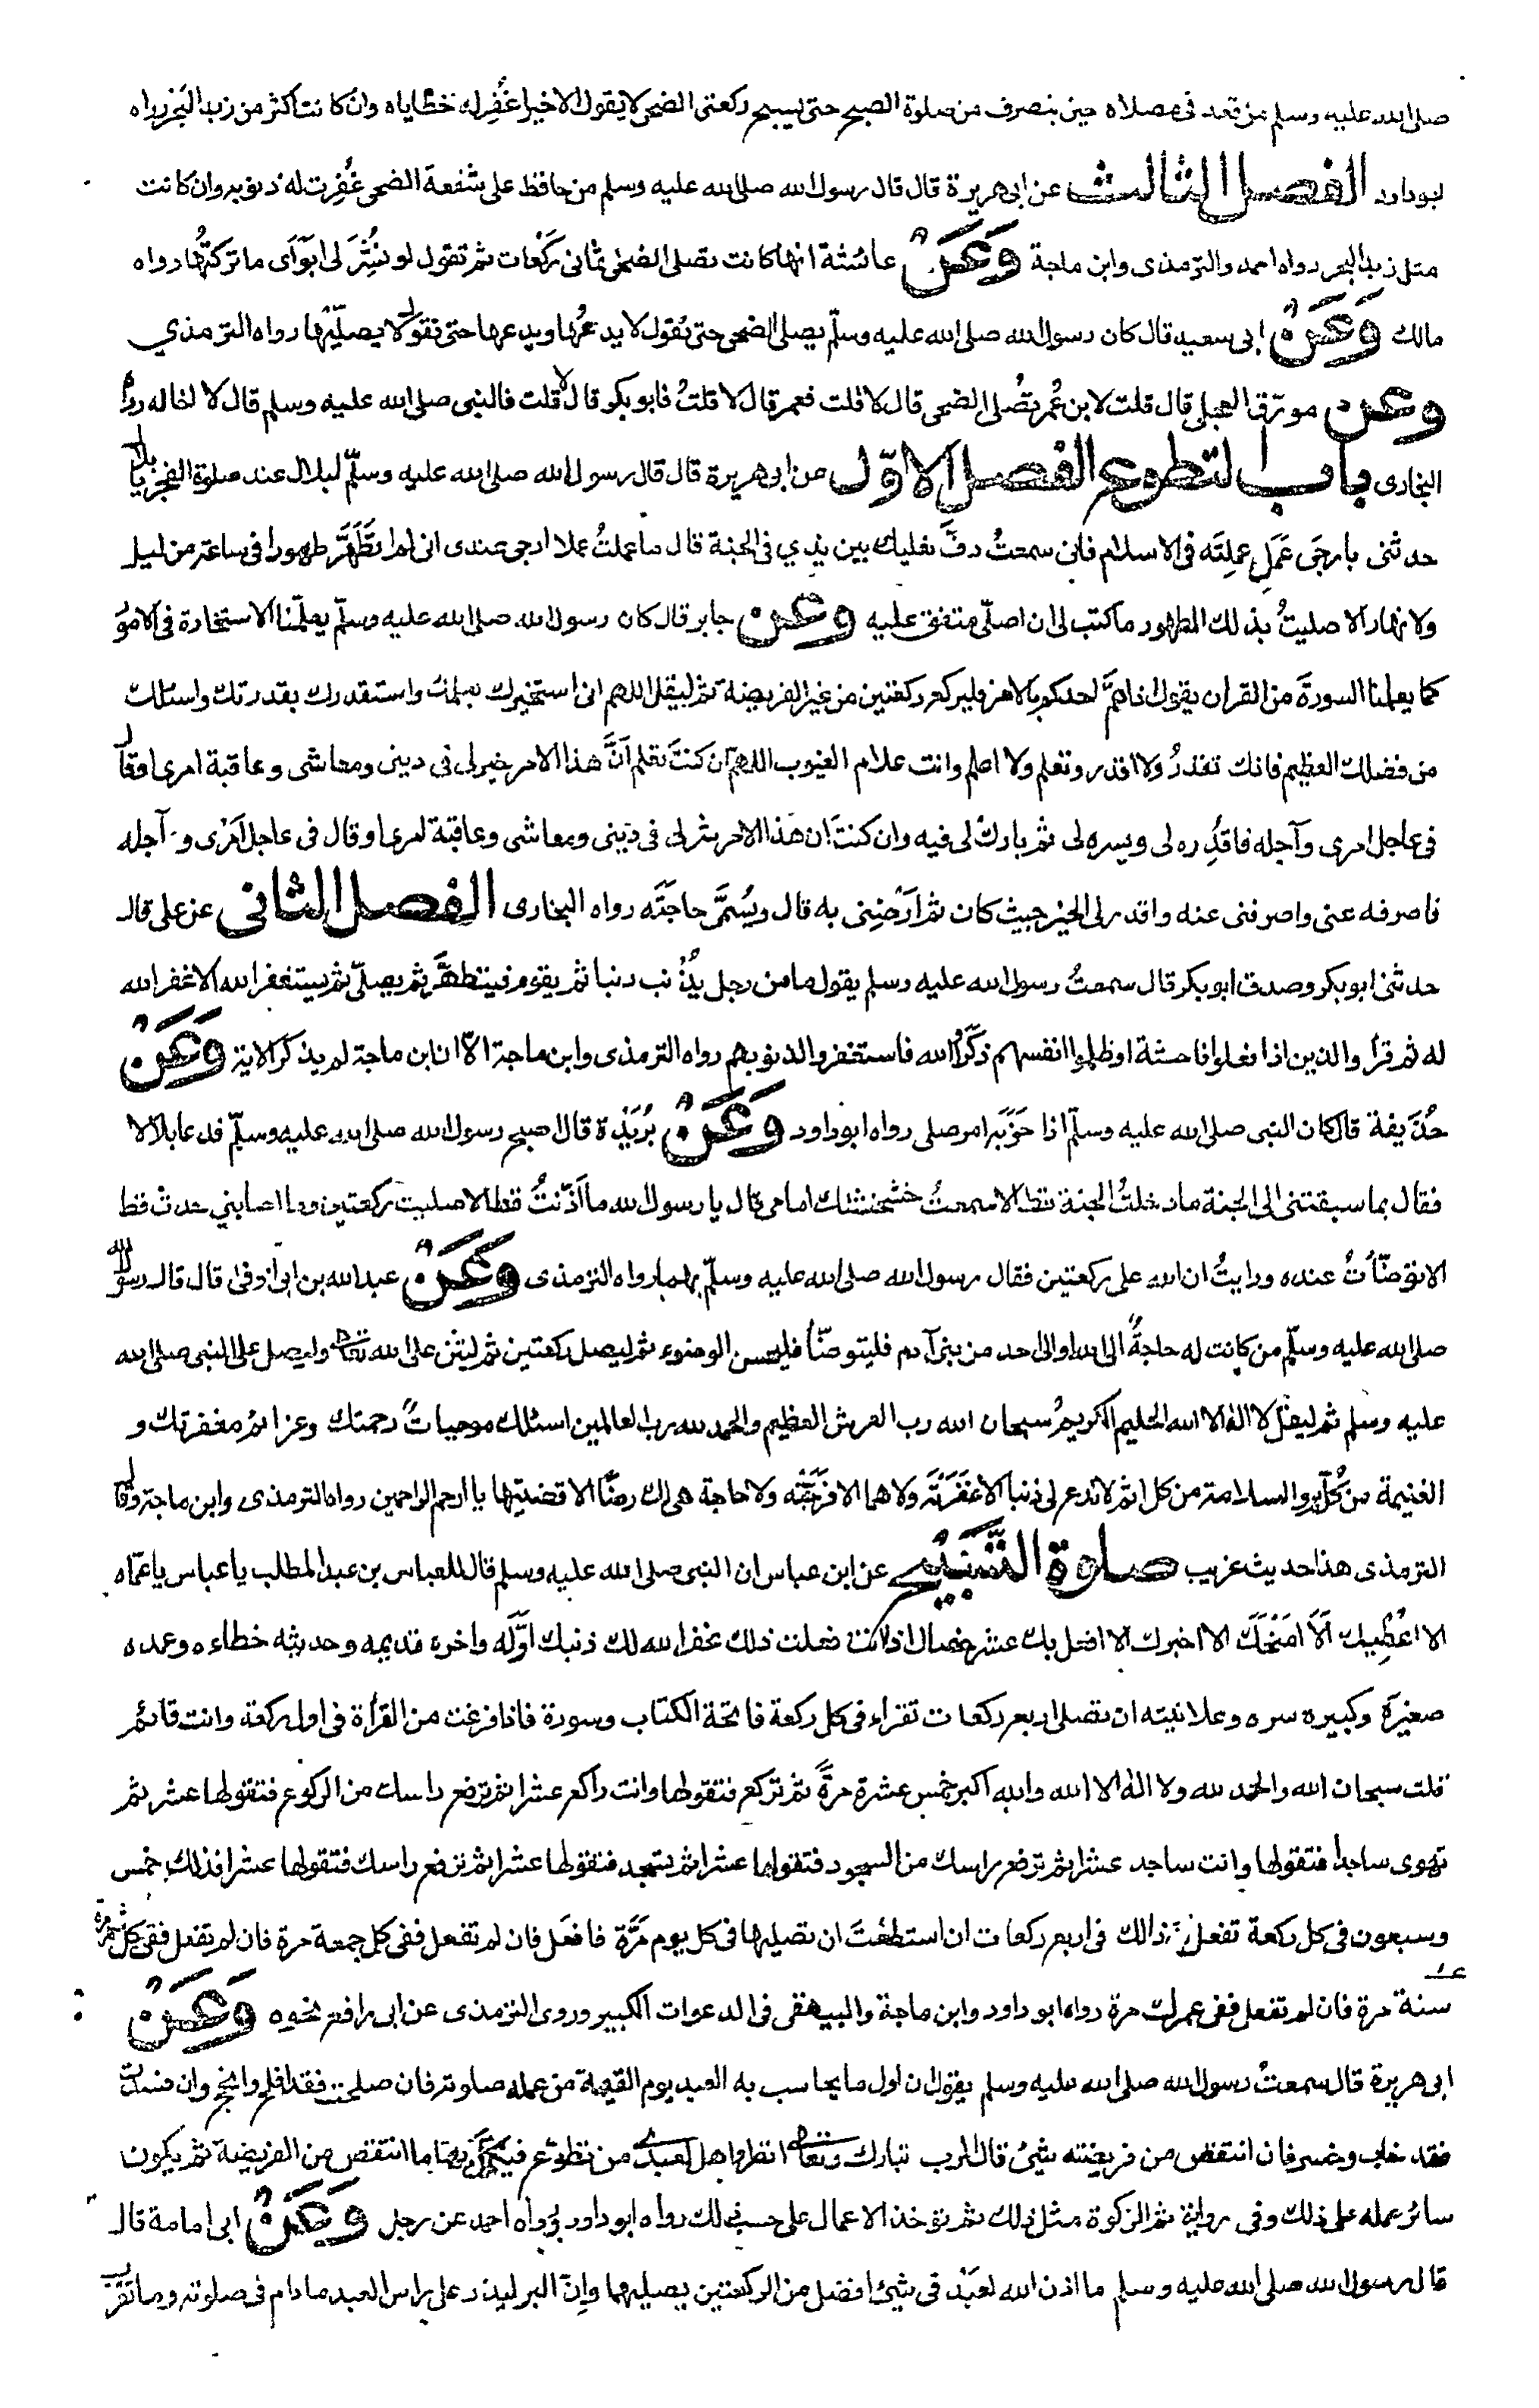 صلى الله عليه وسلم من قعد فى مصلاه حين ينصرف من صلوة الصبح حتى يسبح ركعتى الضحى لا يقول الا خيرا غُفِر له خطاياه وان كانت اكثر من زبد البحر رواه
ابوداود الفصل الثالث عن ابى هريرة قال قال رسول الله صلى الله عليه وسلم من حافظ على شفعة الضحى غُفِرت له ذنوبه وان كانت
مثل زبد البحر رواه احمد والترمذى وابن ماجة وَعَنْ عائشة انها كانت تصلى الضحى ثمانى ركعات ثم تقول لو نُشِرَ لى ابَوَاى ما تركتُها رواه
مالك وَعَنْ ابى سعيد قال كان رسول الله صلى الله عليه وسلّم يصلى الضحى حتى نقول لا يدعُها ويدعها حتى نقول لا يصلّيها رواه الترمذي
وعن مورّق العجلى قال قلت لابن عُمر تُصلى الضحى قال لا قلت فعمر قال لا قلتُ فابو بكر قال لا قلت فالنبى صلى الله عليه وسلم قال لا اخاله رواه
البخارى باب التطوع الفصل الاوّل عن ابى هريرة قال قال رسول الله صلى الله عليه وسلّم لبلال عند صلوة الفجر يا بلال
حدثنى بارجَى عَمَلٍ عملتَه فى الاسلام فانى سمعتُ دفَّ نعليك بين يدي فى الجنة قال ما عملتُ عملا ارجى عندى انى لم اتَطَهَّرَ طهورا فى ساعة من ليل
ولا نهار الا صليتُ بذلك الطهور ما كتب لى ان اصلّى متفق عليه وعن جابر قال كان رسول الله صلى الله عليه وسلّم يعلّمنا الاستخارة فى الامور
كما يعلمنا السورةَ من القرآن يقول اذا همَّ احدكم بالامر فليركع ركعتين من غير الفريضة ثم ليقل اللهم انى استخيرك بعلمك واستقدرك بقدرتك واسئلك
من فضلك العظيم فانك تقدرُ ولا اقدر وتعلم ولا اعلم وانت علام الغيوب اللهم ان كنتَ تعلم اَنَّ هذا الامر خير لى فى دينى ومعاشى وعاقبة امرى او قال
فى عاجل امرى وآجله فاقدُره لى ويسره لى ثم بارك لى فيه وان كنتَ ان هذا الامر شر لى فى دينى ومعاشى وعاقبة امرى او قال فى عاجل اَمرى وآجله
فاصرفه عنى واصرفنى عنه واقدر لى الخير حيث كان ثم اَرْضِنِى به قال ويُسمّى حاجَتَه رواه البخارى الفصل الثانى عن على قال
حدثنى ابو بكر وصدق ابو بكر قال سمعتُ رسول الله عليه وسلم يقول ما من رجل يُذْنب ذنبا ثم يقوم فيتطهَّر ثم يصلّى ثم يستغفر الله الا غفر الله
له ثم قرأ والذين اذا فعلوا فاحشة او ظلموا انفسهم ذكَرُوا الله فاستغفروا لذنوبهم رواه الترمذى وابن ماجة الاّ ان ابن ماجة لم يذكر الاية وَعَنْ
حُذَيفة قال كان النبى صلى الله عليه وسلّم اذا حَزَبَه امر صلى رواه ابوداود وَعَنْ بُرَيْدة قال اصبح رسول الله صلى الله عليه وسلّم فدعا بلالا
فقال بما سبقتنى الى الجنة ما دخلتُ الجنة قط الا سمعتُ خشخشتك امامى قال يا رسول الله ما اَذّنتُ قط الا صليت ركعتين وما اصابنى حدث قط
الا توضّأتُ عنده ورايتُ ان لله على ركعتين فقال رسول الله صلى الله عليه وسلّم بهما رواه الترمذى وعَنْ عبد الله بن ابى اَوفى قال قال رسول الله
صلى الله عليه وسلّم من كانت له حاجةٌ الى الله او الى احد من بنى آدم فليتوضّأ فليحسن الوضوء ثم ليصل ركعتين ثم ليثن على الله تعالى وليصل على النبى صلى الله
عليه وسلم ثم ليقل لا اله الا الله الحليم الكريمُ سبحان الله رب العرش العظيم والحمد لله رب العالمين اسئلك موجبات رحمتك وعزائم مغفرتك و
الغنيمة من كلّ بر والسلامة من كل اثم لا تدع لى ذنبا الا غَفَرْتَه ولا هما الا فرّجته ولا حاجة هى لك رضًا الا قضيتها يا ارحم الراحمين رواه الترمذى وابن ماجة وقال
الترمذى هذا حديث غريب صلوة التَّسْبِيْح عن ابن عباس ان النبى صلى الله عليه وسلم قال للعباس بن عبد المطلب يا عباس يا عمّاه
الا اعُطِيك اَلَا امنَحُكَ الا اخبرك الا افعل بك عشر خصال اذا انت فعلت ذلك غفر الله لك ذنبك اوّلَه واخره قديمه وحديثه خطاءه وعمده
صغيرَة وكبيره سره وعلانيته ان تصلى اربع ركعات تقراء فى كل ركعة فاتحة الكتاب وسورة فاذا فرغت من القرأة فى اول ركعة وانت قائم
قلت سبحان الله والحمد لله ولا اله الا الله والله اكبر خمس عشرة مرةً ثم تركع فتقولها وانت راكع عشرا ثم ترفع راسك من الركوع فتقولها عشر ثم
تهوى ساجدا فتقولها وانت ساجد عشرا ثم ترفع راسك من السجود فتقولها عشرا ثم تسجد فتقولها عشرا ثم ترفع راسك فتقولها عشرا فذلك خمس
وسبعون فى كل ركعة تفعل ذالك فى اربع ركعات ان استطعْتَ ان تصليها فى كل يوم مَرَّة فافعَل فان لم تفعل ففى كل جمعة مرة فان لم تفعل ففى كل شهر مرة
سنة مرة فان لم تفعل ففى عمرك مرة رواه ابو داود وابن ماجة والبيهقى فى الدعوات الكبير وروى الترمذى عن ابى رافع نحوه وَعَنْ
ابى هريرة قال سمعتُ رسول الله صلى الله عليه وسلم يقول ان اول ما يحاسب به العبد يوم القيمة من عمله صلوته فان صلحت فقد افلح وانجح وان فسدت
فقد خاب وخسر فان انتقص من فريضته شيئ قال الرب تبارك وتعالى انظروا هل لعبدى من تطوّع فيكمّل بها ما انتقص من الفريضة ثم يكون
سائر عمله على ذلك وفى رواية ثم الزكوة مثل ذلك ثم توخذ الاعمال على حسب ذلك رواه ابو داود ورواه احمد عن رجل وَعَنْ ابى امامة قال
قال رسول الله صلى الله عليه وسلم ما اذن الله لعَبْد فى شيئ افضل من الركعتين يصليهما واِنّ البر ليذر على راس العبد ما دام فى صلوته وما تقرب